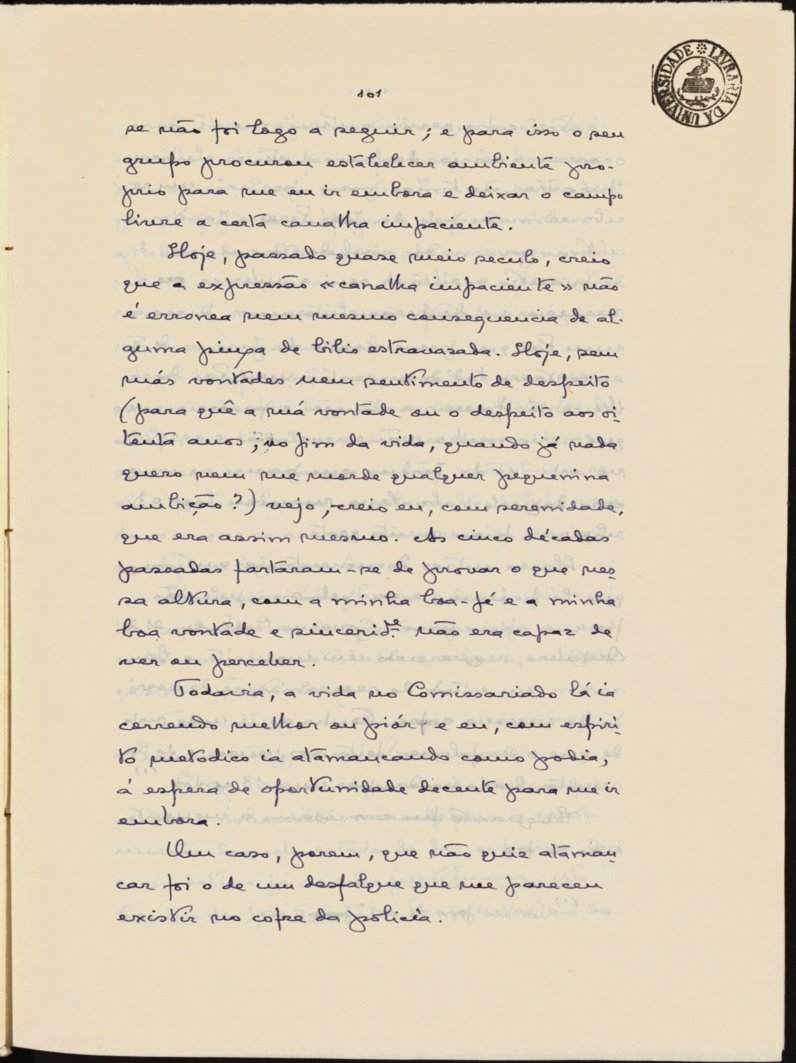 101
LIVRARIA DA UNIVERSIDADE
se não foi logo a seguir; e para isso o seu
grupo procurou estabelecer ambiente pro-
prio para me eu ir embora e deixar o campo
livre a certa canalha impaciente.
Hoje, passado quase meio seculo, creio
que a expressão «canalha impaciente» não
é erronea nem mesmo consequencia de al-
guma pinga de bilis estravasada. Hoje, sem
más vontades nem sentimento de despeito
(para quê a má vontade ou o despeito aos oi-
tenta anos; no fim da vida, quando já nada
quero nem me morde qualquer pequenina
ambição?) vejo, creio eu, com serenidade,
que era assim mesmo. As cinco décadas
passadas fartaram-se de provar o que nes-
sa altura, com a minha boa-fé e a minha
boa vontade e sincerid.e não era capaz de
ver ou perceber.
Todavia, a vida no Comissariado lá ia
correndo melhor ou piór e eu, com espiri-
to metodico ia atamancando como podia,
á espera de oportunidade decente para me ir
embora.
Um caso, porem, que não quiz ataman-
car foi o de um desfalque que me pareceu
existir no cofre da policia.